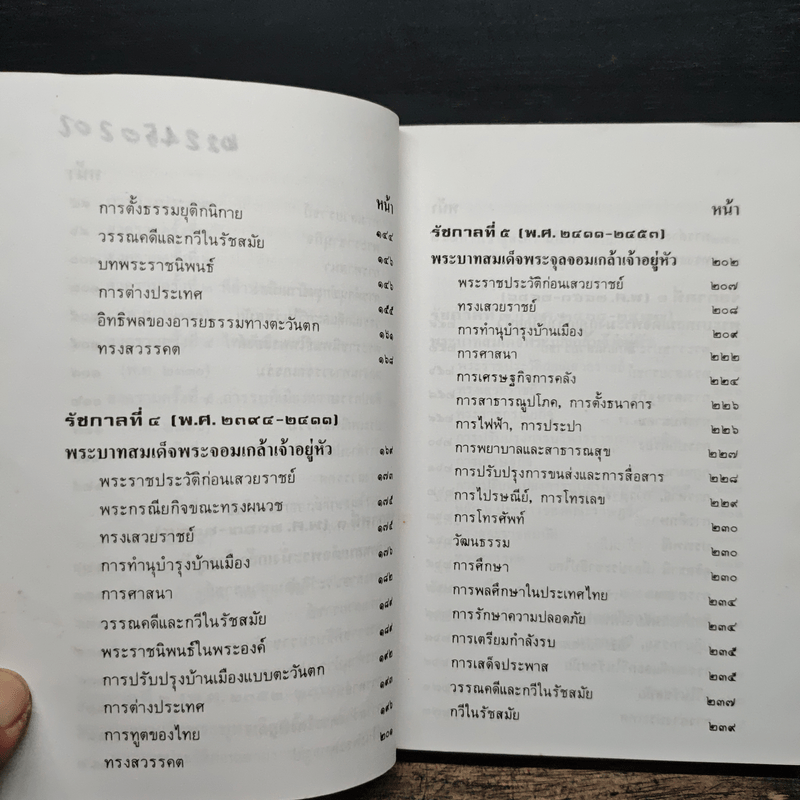 หน้า
การตั้งธรรมยุติกนิกาย ๑๔๔
วรรณคดีและกวีในรัชสมัย ๑๔๖
บทพระราชนิพนธ์ ๑๔๖
การต่างประเทศ ๑๕๕
อิทธิพลของอารยธรรมทางตะวันตก ๑๖๑
ทรงสวรรคต ๑๖๘
รัชกาลที่ ๔ (พ.ศ. ๒๓๙๔-๒๔๑๑)
พระบาทสมเด็จพระจอมเกล้าเจ้าอยู่หัว ๑๖๙
พระราชประวัติก่อนเสวยราชย์ ๑๗๓
พระกรณียกิจขณะทรงผนวช ๑๗๕
ทรงเสวยราชย์ ๑๗๕
การทำนุบำรุงบ้านเมือง ๑๗๖
การศาสนา ๑๘๒
วรรณคดีและกวีในรัชสมัย ๑๘๙
พระราชนิพนธ์ในพระองค์ ๑๘๙
การปรับปรุงบ้านเมืองแบบตะวันตก ๑๙๒
การต่างประเทศ ๑๙๓
การทูตของไทย ๑๙๖
ทรงสวรรคต ๒๐๑
หน้า
รัชกาลที่ ๕ (พ.ศ. ๒๔๑๑-๒๔๕๓)
พระบาทสมเด็จพระจุลจอมเกล้าเจ้าอยู่หัว ๒๐๒
พระราชประวัติก่อนเสวยราชย์ ๒๐๗
ทรงเสวยราชย์ ๒๐๘
การทำนุบำรุงบ้านเมือง ๒๐๙
การศาสนา ๒๒๒
การเศรษฐกิจการคลัง ๒๒๔
การสาธารณูปโภค, การตั้งธนาคาร ๒๒๖
การไฟฟ้า, การประปา ๒๒๖
การพยาบาลและสาธารณสุข ๒๒๗
การปรับปรุงการขนส่งและการสื่อสาร ๒๒๘
การไปรษณีย์, การโทรเลข ๒๒๙
การโทรศัพท์ ๒๓๐
วัฒนธรรม ๒๓๐
การศึกษา ๒๓๐
การพลศึกษาในประเทศไทย ๒๓๔
การรักษาความปลอดภัย ๒๓๔
การเตรียมกำลังรบ ๒๓๕
การเสด็จประพาส ๒๓๕
วรรณคดีและกวีในรัชสมัย ๒๓๗
กวีในรัชสมัย ๒๓๙